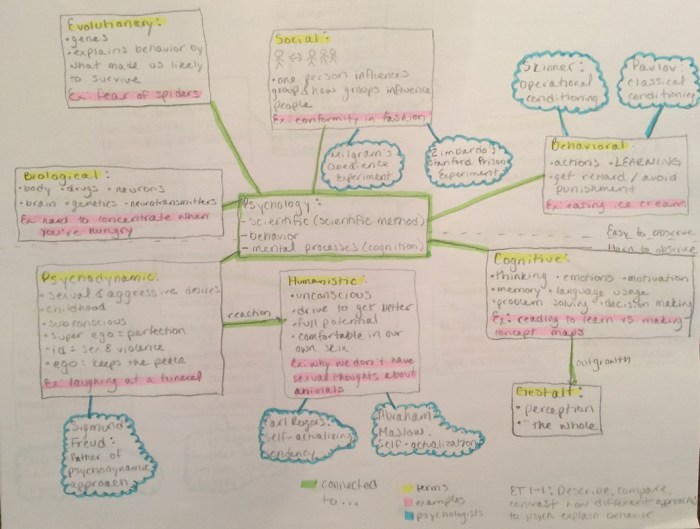 Evolutionary:
• genes
• explains behavior by
what made us likely
to survive
Ex: fear of spiders
Social:
• one person influences
group & how groups influence
people
Ex: conformity in fashion
Milgram's
Obedience
Experiment
Zimbardo:
Stanford Prison
Experiment
Skinner:
Operational
conditioning
Pavlov:
classical
conditioning
Behavioral
• actions • LEARNING
• get reward / avoid
punishment
Ex: eating ice cream
Biological:
• body • drugs • neurons
• brain • genetics • neurotransmitters
Ex: hard to concentrate when
you're hungry
Psychology:
- scientific (scientific method)
- behavior
- mental processes (cognition)
Easy to observe
Hard to observe
Psychodynamic:
• sexual & aggressive desires
• childhood
• subconscious
• super ego = perfection
• id = sex & violence
• ego: keeps the peace
Ex: laughing at a funeral
reaction
Humanistic:
• unconscious
• drive to get better
• full potential
• comfortable in our
own skin
Ex: why we don't have
sexual thoughts about
animals
Cognitive:
• thinking • emotions • motivation
• memory • language usage
• problem solving • decision making
Ex: reading to learn vs making
concept maps
outgrowth
Gestalt:
• perception
• "the whole
Sigmund
Freud:
Father of
psychodynamic
approach
Carl Rogers:
Self-actualizing
tendency
Abraham
Maslow:
Self-actualization
connected
to...
terms
examples
psychologists
ET 1-1: Describe, compare,
contrast how different approaches
to psych explain behavior